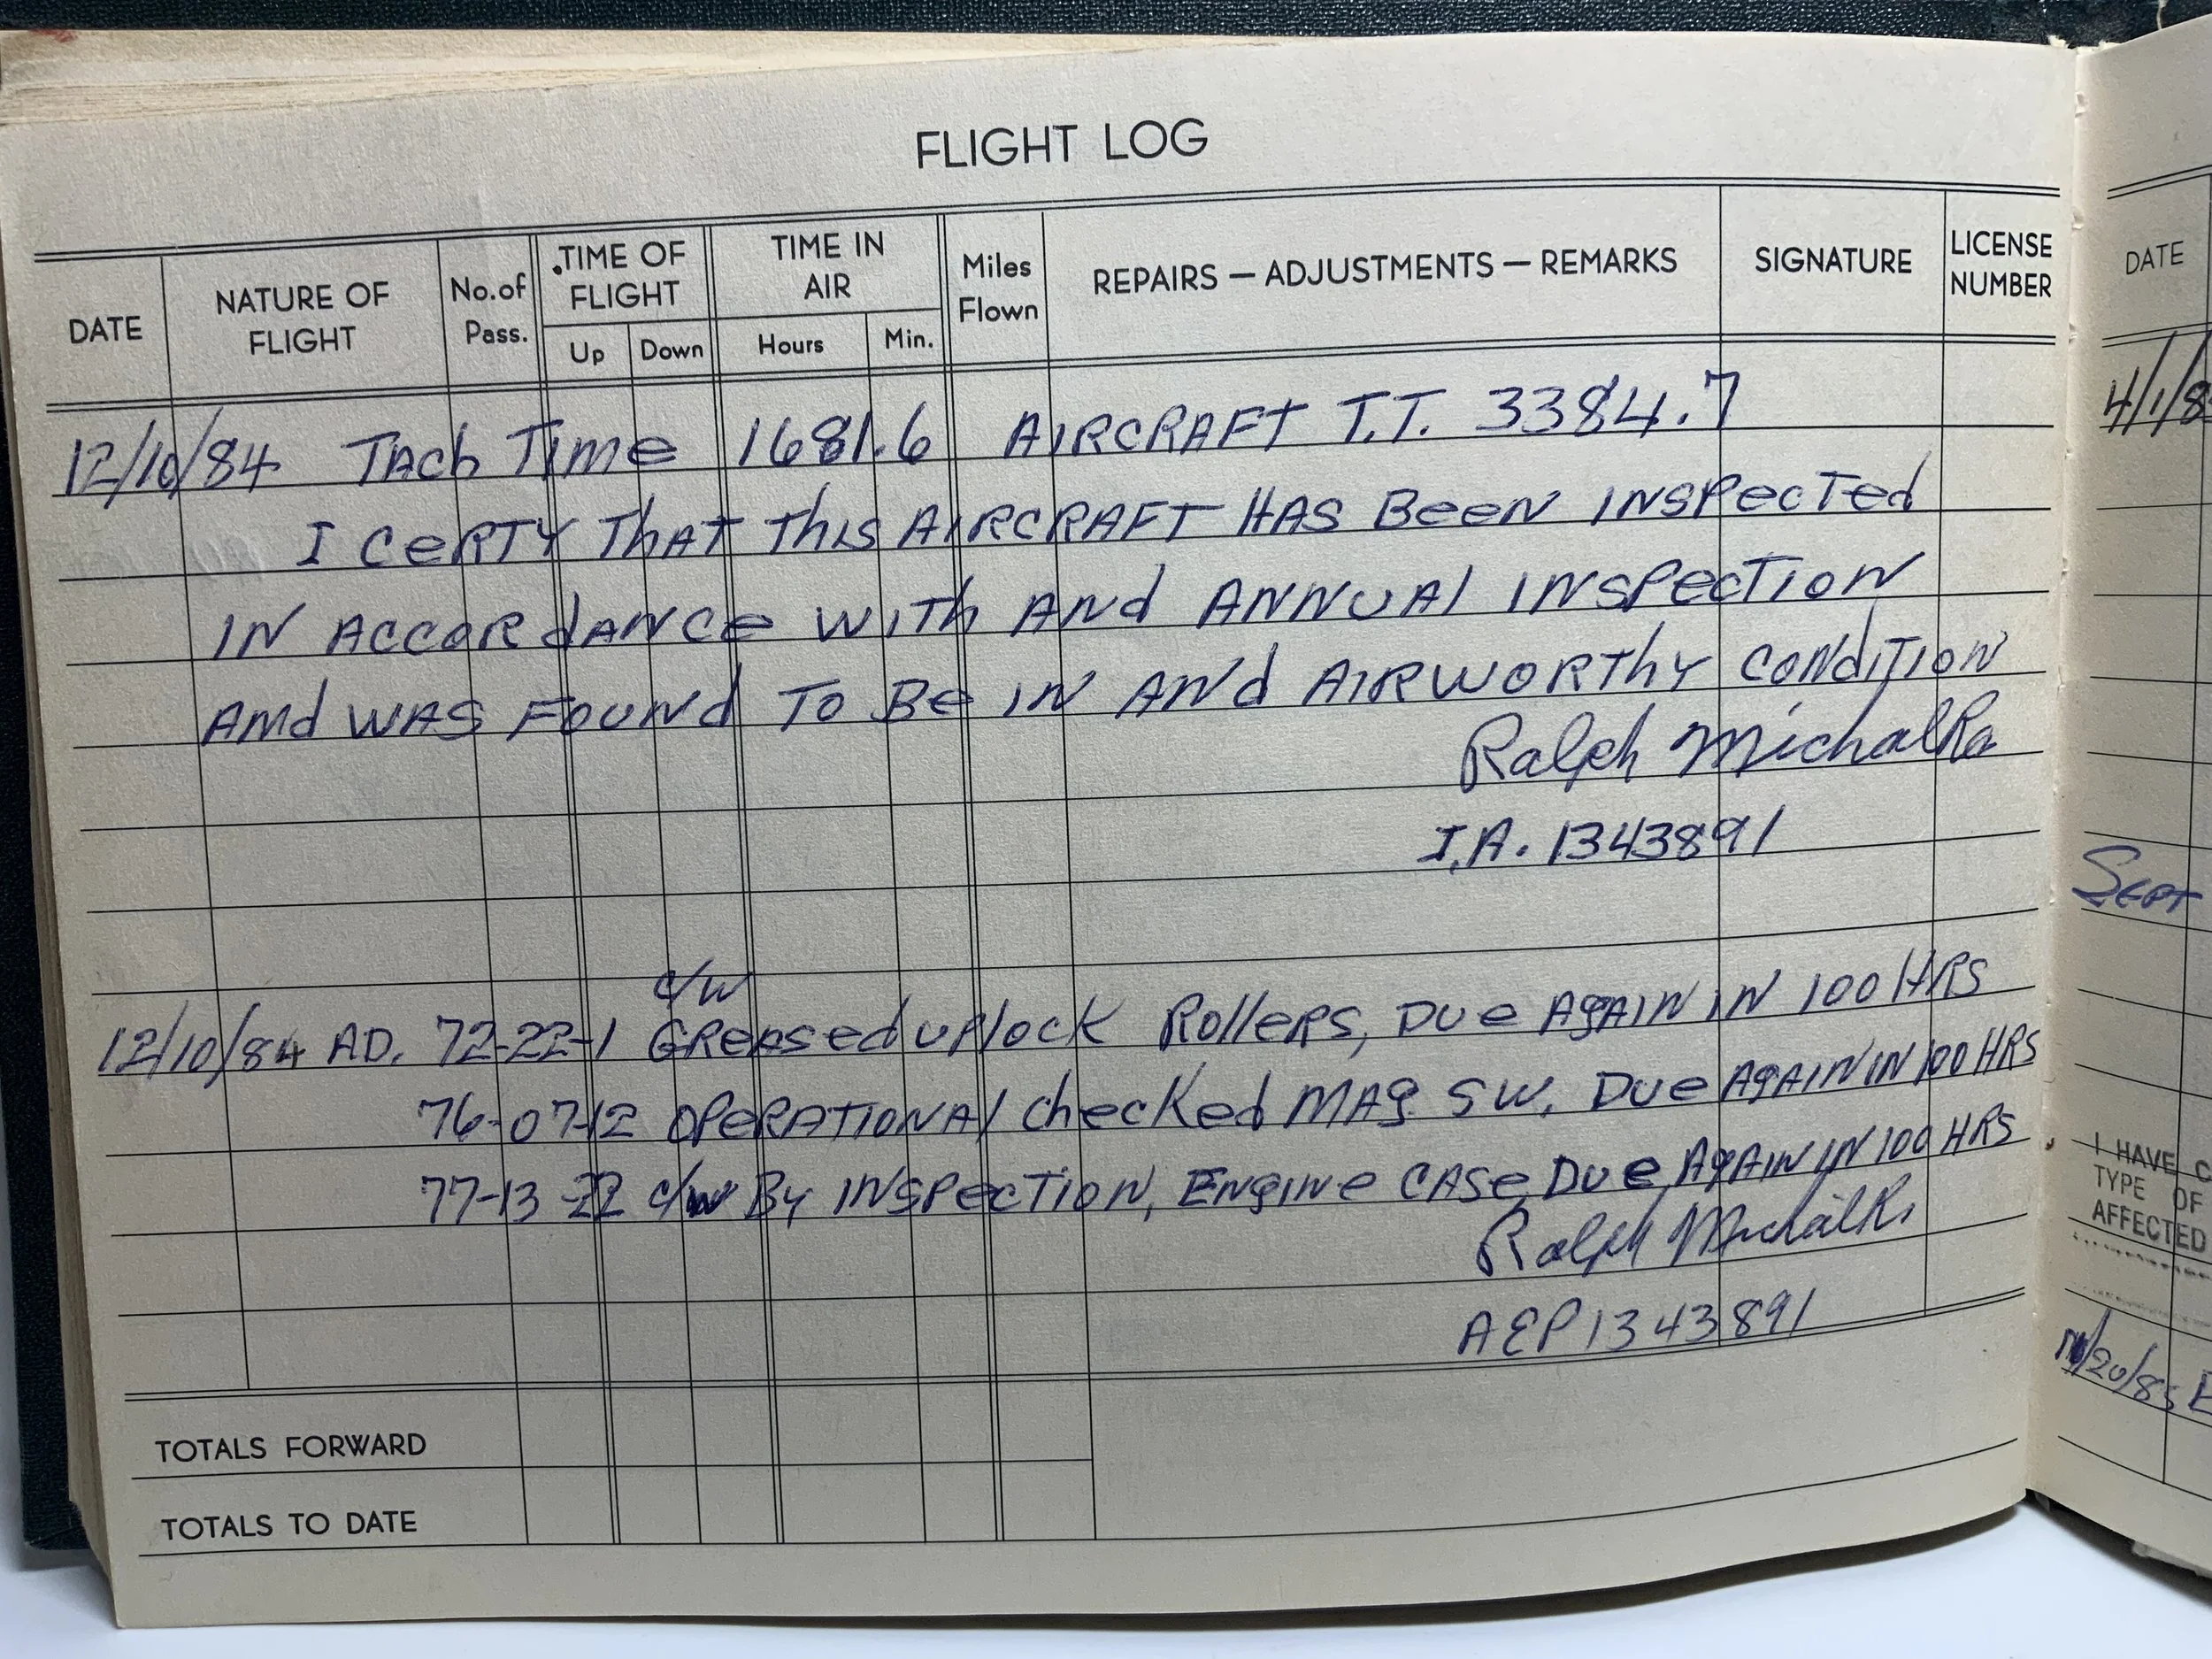 FLIGHT LOG
DATE
NATURE OF FLIGHT
No. of Pass.
TIME OF FLIGHT
Up
Down
TIME IN AIR
Hours
Min.
Miles Flown
REPAIRS — ADJUSTMENTS — REMARKS
SIGNATURE
LICENSE NUMBER
12/10/84 TACh TIme 1681.6 AIRCRAFT T.T. 3384.7
I CeRTY ThAT ThIS AIRCRAFT HAS BeeN INSPecTed
IN ACCORdANCe WITh ANd ANNUAl INSPecTION
AMd WAS FOUNd TO Be IN ANd AIRWORThY CONdITION
Ralph Michalka
I.A. 1343891
c/w
12/10/84 AD. 72-22-1 GReased uplock RolleRs, Due AgAIN IN 100 HRS
76-07-12 OPeRATIONAl checKed MAg SW. Due AgAIN IN 100 HRS
77-13-22 c/w By INSPecTION, ENgINe CASe, Due AgAIN IN 100 HRS
Ralph
A&P 1343891
TOTALS FORWARD
TOTALS TO DATE
DATE
4/1/8
SEPT
I HAVE C
TYPE OF
AFFECTED
/20/85 E